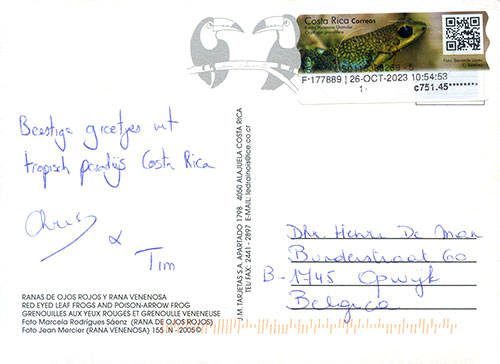 Costa Rica Correos
F-177889 | 26-OCT-2023 10:54:53
1 ¢751.45*******
Beestige groetjes uit
tropisch paradijs Costa Rica
Chris
&
Tim
J.M. TARJETAS S.A. APARTADO 1798 4050 ALAJUELA COSTA RICA
TEL/FAX: 2441 - 2897 E-MAIL:
Dhr. Henri De Man
Bunderstraat 60
B-1745 Opwijk
Belgica
RANAS DE OJOS ROJOS Y RANA VENENOSA
RED EYED LEAF FROGS AND POISON-ARROW FROG
GRENOUILLES AUX YEUX ROUGES ET GRENOULLE VENENEUSE
Foto Marcela Rodrigües Sáenz (RANA DE OJOS ROJOS)
Foto Jean Mercier (RANA VENENOSA) 155 .N - 2005©